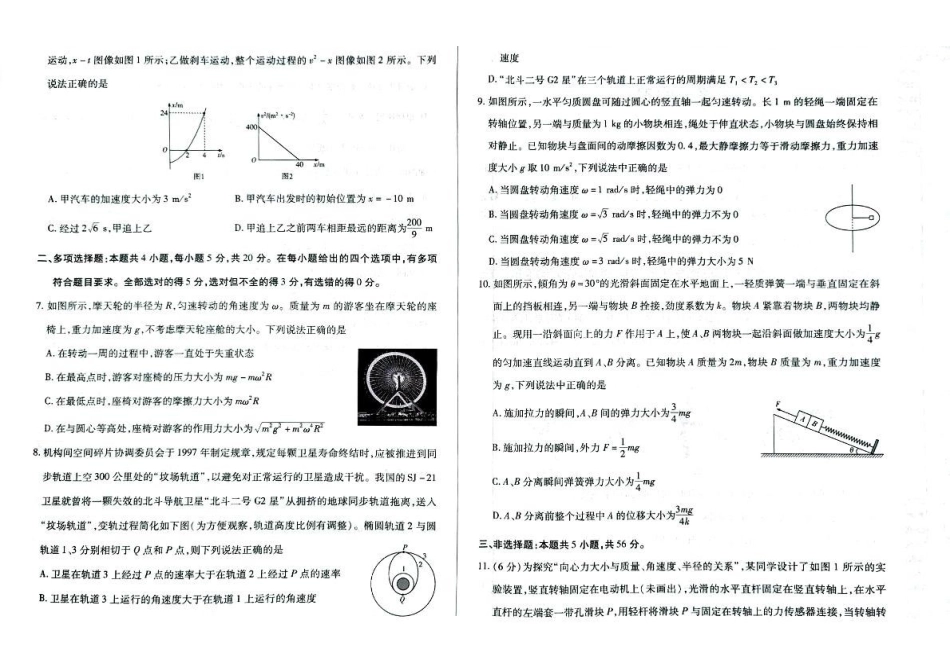 运动,x-t图像如图1所示;乙做刹车运动,整个运动过程的v²-x图像如图2所示。下列
说法正确的是
x/m
24
0
2
4
t/s
图1
v²/(m²·s⁻²)
400
0
40
x/m
图2
A. 甲汽车的加速度大小为3 m/s²
B. 甲汽车出发时的初始位置为x=-10 m
C. 经过2√6 s,甲追上乙
D. 甲追上乙之前两车相距最远的距离为200/9 m
二、多项选择题:本题共4小题,每小题5分,共20分。在每小题给出的四个选项中,有多项
符合题目要求。全部选对的得5分,选对但不全的得3分,有选错的得0分。
7. 如图所示,摩天轮的半径为R,匀速转动的角速度为ω。质量为m的游客坐在摩天轮的座
椅上,重力加速度为g,不考虑摩天轮座舱的大小。下列说法正确的是
A. 在转动一周的过程中,游客一直处于失重状态
B. 在最高点时,游客对座椅的压力大小为mg-mω²R
C. 在最低点时,座椅对游客的摩擦力大小为mω²R
D. 在与圆心等高处,座椅对游客的作用力大小为√m²g²+m²ω⁴R²
8. 机构间空间碎片协调委员会于1997年制定规章,规定每颗卫星寿命终结时,应被推进到同
步轨道上空300公里处的“坟场轨道”,以避免对正常运行的卫星造成干扰。我国的SJ-21
卫星就曾将一颗失效的北斗导航卫星“北斗二号G2星”从拥挤的地球同步轨道拖离,送入
“坟场轨道”,变轨过程简化如下图(为方便观察,轨道高度比例有调整)。椭圆轨道2与圆
轨道1、3分别相切于Q点和P点,则下列说法正确的是
A. 卫星在轨道3上经过P点的速率大于在轨道2上经过P点的速率
B. 卫星在轨道3上运行的角速度大于在轨道1上运行的角速度
P
3
2
1
Q
速度
D. “北斗二号G2星”在三个轨道上正常运行的周期满足T₁<T₂<T₃
9. 如图所示,一水平匀质圆盘可随过圆心的竖直轴一起匀速转动。长1 m的轻绳一端固定在
转轴位置,另一端与质量为1 kg的小物块相连,绳处于伸直状态,小物块与圆盘始终保持相
对静止。已知物块与盘面间的动摩擦因数为0.4,最大静摩擦力等于滑动摩擦力,重力加速
度大小g取10 m/s²,下列说法中正确的是
A. 当圆盘转动角速度ω=1 rad/s时,轻绳中的弹力为0
B. 当圆盘转动角速度ω=√3 rad/s时,轻绳中的弹力不为0
C. 当圆盘转动角速度ω=√5 rad/s时,轻绳中的弹力不为0
D. 当圆盘转动角速度ω=3 rad/s时,轻绳中的弹力大小为5 N
10. 如图所示,倾角为θ=30°的光滑斜面固定在水平地面上,一轻质弹簧一端与垂直固定在斜
面上的挡板相连,另一端与物块B拴接,劲度系数为k。物块A紧靠着物块B,两物块均静
止。现用一沿斜面向上的力F作用于A上,使A、B两物块一起沿斜面做加速度大小为1/4g
的匀加速直线运动直到A、B分离。已知物块A质量为2m,物块B质量为m,重力加速度
为g,下列说法中正确的是
A. 施加拉力的瞬间,A、B间的弹力大小为3/4mg
B. 施加拉力的瞬间,外力F=1/2mg
C. A、B分离瞬间弹簧弹力大小为1/4mg
D. A、B分离前整个过程中A的位移大小为3mg/4k
F
A
B
θ
三、非选择题:本题共5小题,共56分。
11. (6分)为探究“向心力大小与质量、角速度、半径的关系”,某同学设计了如图1所示的实
验装置,竖直转轴固定在电动机上(未画出),光滑的水平直杆固定在竖直转轴上,在水平
直杆的左端套一带孔滑块P,用轻杆将滑块P与固定在转轴上的力传感器连接,当转轴转